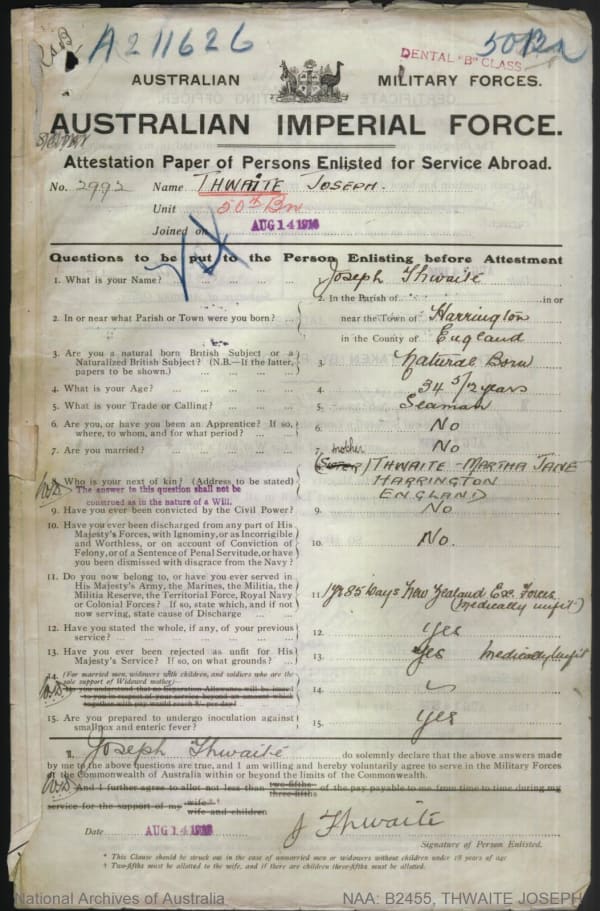 A211626
50Bn
DENTAL "B" CLASS
AUSTRALIAN MILITARY FORCES.
AUSTRALIAN IMPERIAL FORCE.
Attestation Paper of Persons Enlisted for Service Abroad.
No. 2992 Name THWAITE JOSEPH.
Unit 50th Bn
Joined on AUG 14 1916
Questions to be put to the Person Enlisting before Attestation
1. What is your Name? Joseph Thwaite
2. In or near what Parish or Town were you born? 2. In the Parish of in or
near the Town of Harrington
in the County of England
3. Are you a natural born British Subject or a
Naturalized British Subject? (N.B.—If the latter,
papers to be shown.) 3. Natural Born
4. What is your Age? 4. 34 5/12 years
5. What is your Trade or Calling? 5. Seaman
6. Are you, or have you been an Apprentice? If so,
where, to whom, and for what period? 6. No
7. Are you married? 7. No
mother
Who is your next of kin? (Address to be stated) (SISTER) THWAITE - MARTHA JANE
The answer to this question shall not be
construed as in the nature of a Will. HARRINGTON
ENGLAND
9. Have you ever been convicted by the Civil Power? 9. No
10. Have you ever been discharged from any part of His
Majesty's Forces, with Ignominy, or as Incorrigible
and Worthless, or on account of Conviction of
Felony, or of a Sentence of Penal Servitude, or have
you been dismissed with disgrace from the Navy? 10. No.
11. Do you now belong to, or have you ever served in
His Majesty's Army, the Marines, the Militia, the
Militia Reserve, the Territorial Force, Royal Navy
or Colonial Forces? If so, state which, and if not
now serving, state cause of Discharge 11. 1yr 85 Days New Zealand Exe. Forces
(Medically unfit)
12. Have you stated the whole, if any, of your previous
service? 12. Yes
13. Have you ever been rejected as unfit for His
Majesty's Service? If so, on what grounds? 13. Yes Medically Unfit
14. (For married men, widowers with children, and soldiers who are the
sole support of Widowed mother)—
Do you understand that no Separation Allowance will be issued
to you in respect of your service beyond an amount which
together with pay would reach 8/- per day? 14.
15. Are you prepared to undergo inoculation against
smallpox and enteric fever? 15. Yes
I, Joseph Thwaite do solemnly declare that the above answers made
by me to the above questions are true, and I am willing and hereby voluntarily agree to serve in the Military Forces
of the Commonwealth of Australia within or beyond the limits of the Commonwealth.
And I further agree to allot not less than two-fifths three-fifths of the pay payable to me from time to time during my
service for the support of my wife wife and children
Date AUG 14 1916 J Thwaite
Signature of Person Enlisted.
* This Clause should be struck out in the case of unmarried men or widowers without children under 18 years of age
† Two-fifths must be allotted to the wife, and if there are children three-fifths must be allotted.
National Archives of Australia NAA: B2455, THWAITE JOSEPH